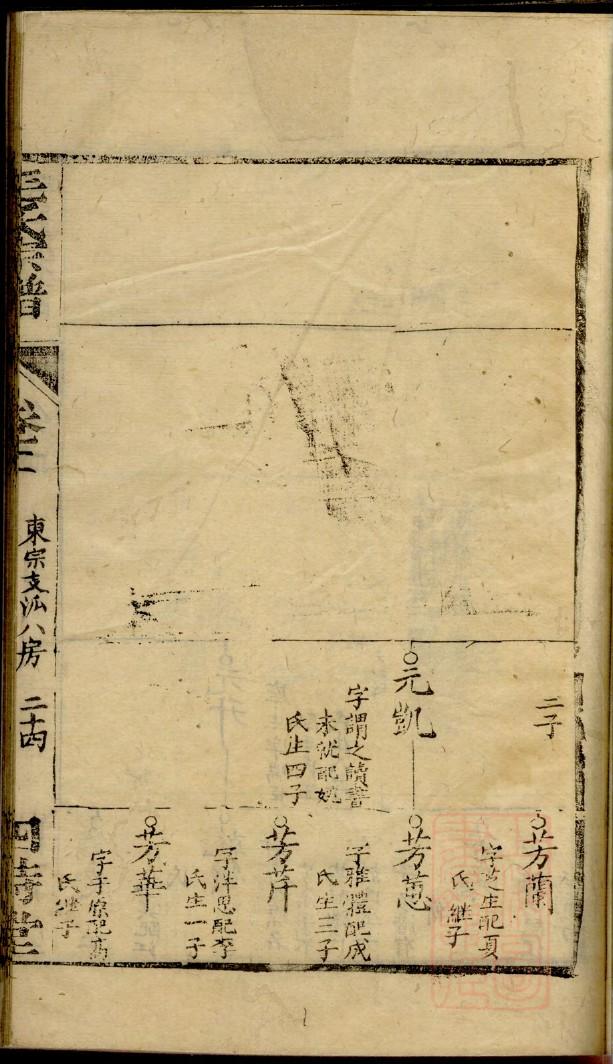 二子
芳蘭
字芝生配夏
氏繼子
元凱
字謂之讀書
未就配姚
氏生四子
芳蕙
字雅體配成
氏生三子
芳芹
字泮思配李
氏生一子
芳華
字子條配高
氏繼子
宗譜
卷二
東宗支派八房 二十四